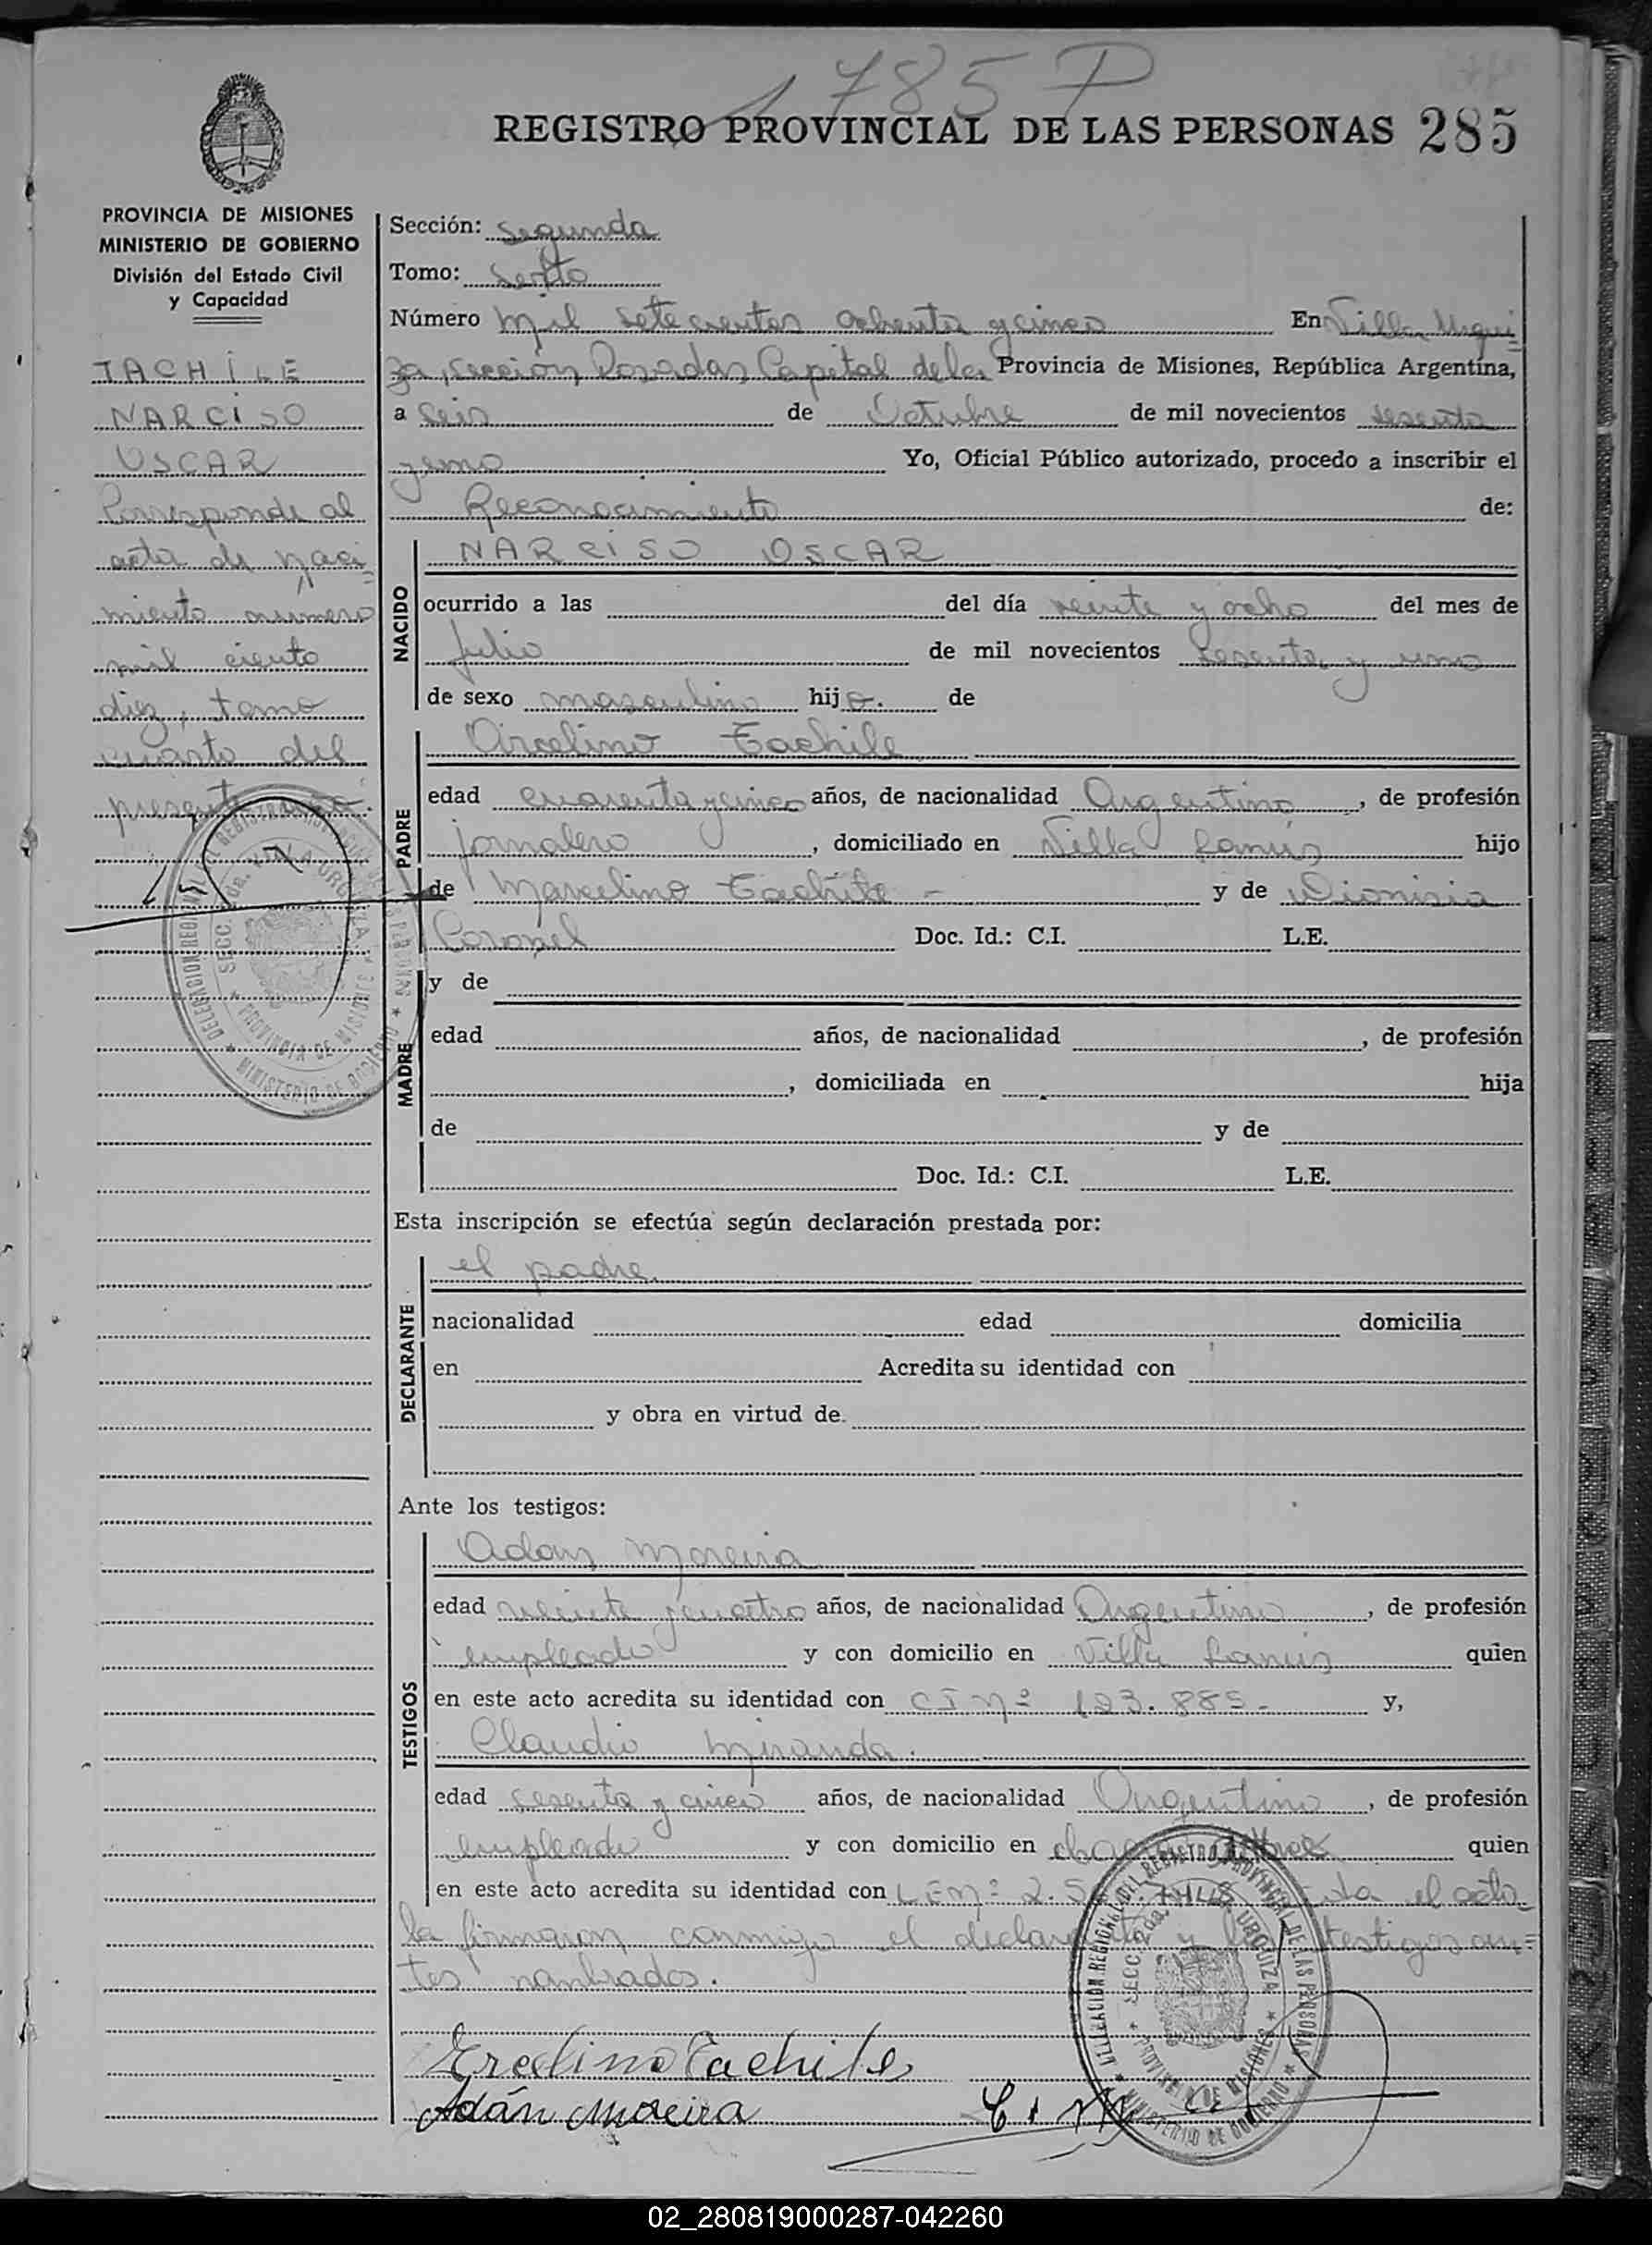 1785 P
REGISTRO PROVINCIAL DE LAS PERSONAS 285
PROVINCIA DE MISIONES
MINISTERIO DE GOBIERNO
División del Estado Civil
y Capacidad
TACHILE
NARCISO
OSCAR
Corresponde al
acta de naci
miento numero
mil ciento
diez, tomo
cuarto del
presente año.
Sección: segunda
Tomo: sexto
Número mil setecientos ochenta y cinco En Villa Urqui
za, sección Posadas Capital de la Provincia de Misiones, República Argentina,
a seis de Octubre de mil novecientos sesenta
y uno Yo, Oficial Público autorizado, procedo a inscribir el
Reconocimiento de:
NACIDO
NARCISO OSCAR
ocurrido a las del día veinte y ocho del mes de
Julio de mil novecientos sesenta y uno
de sexo masculino hijo. de
PADRE
Tachile
edad cuarenta y cinco años, de nacionalidad Argentino, de profesión
jornalero, domiciliado en Villa Lanús hijo
de Marcelino Tachile - y de Dionisia
Coronel Doc. Id.: C.I. L.E.
MADRE
y de
edad años, de nacionalidad , de profesión
, domiciliada en hija
de y de
Doc. Id.: C.I. L.E.
Esta inscripción se efectúa según declaración prestada por:
DECLARANTE
el padre
nacionalidad edad domicilia
en Acredita su identidad con
y obra en virtud de
Ante los testigos:
TESTIGOS
Adan Moreira
edad veinte y cuatro años, de nacionalidad Argentino, de profesión
empleado y con domicilio en Villa Lanús quien
en este acto acredita su identidad con C I Nº 123.885.- y,
Claudio Miranda.
edad sesenta y cinco años, de nacionalidad Argentino, de profesión
empleado y con domicilio en quien
en este acto acredita su identidad con L E Nº 2.5 el acta
la firmaron conmigo el declarante y los testigos an=
tes nombrados.
Tachile
Adán Moreira
DELEGACION REGIONAL DEL REGISTRO PROVINCIAL DE LAS PERSONAS
SECC. 2da. VILLA URQUIZA
PROVINCIA DE MISIONES
MINISTERIO DE GOBIERNO
02_280819000287-042260